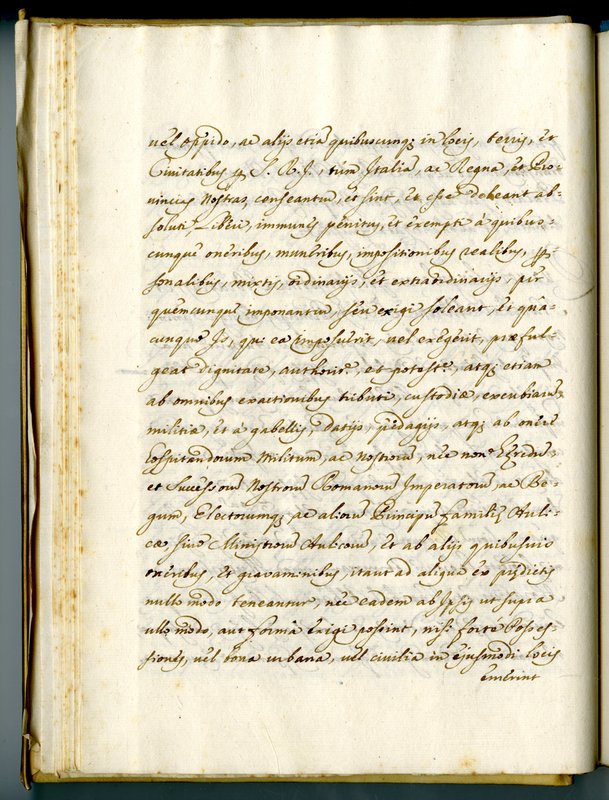 vel oppido, ac alijs etiã quibuscunq; in locis, terris, et
Civitatibus p S. R. I., tùm Italia, ac Regna, et Pro-
vincias Nostras, censeantur, et sint, et esse debeant ab-
soluti, Liberi, immunes penitus, et exempti à quibus-
cunque oneribus, muneribus, impositionibus realibus, p-
sonalibus, mixtis, ordinarijs, et extraordinarijs, per
quemcunque imponantur, seu exigi soleant, et qua-
cunque Is, qui ea imposuerit, vel exegerit, præful-
geat dignitate, authorit.e, et potest.e, atq; etiam
ab omnibus exactionibus tributi, custodiæ, excubiarũ,
militiæ, et à gabellis, datijs, pedagijs, atq; ab onere
hospitandorum Militum, ac Nostrorũ, nec non Hæredũ,
et Successorũ Nostrorũ Romanorũ Imperatorũ, ac Re-
gum, Electorumq; ac aliorũ Principũ Familiæ Auli-
cæ sive Ministrorũ Aulicorũ, et ab alijs quibusvis
oneribus, et gravaminibus, itaut ad aliqua ex prędictis
nullo modo teneantur, nec eadem ab Ipsis ut supra
ullo modo, aut formâ exigi possint, nisi forte Posses-
siones, vel bona urbana, vel civilia in ejusmodi locis
emerint